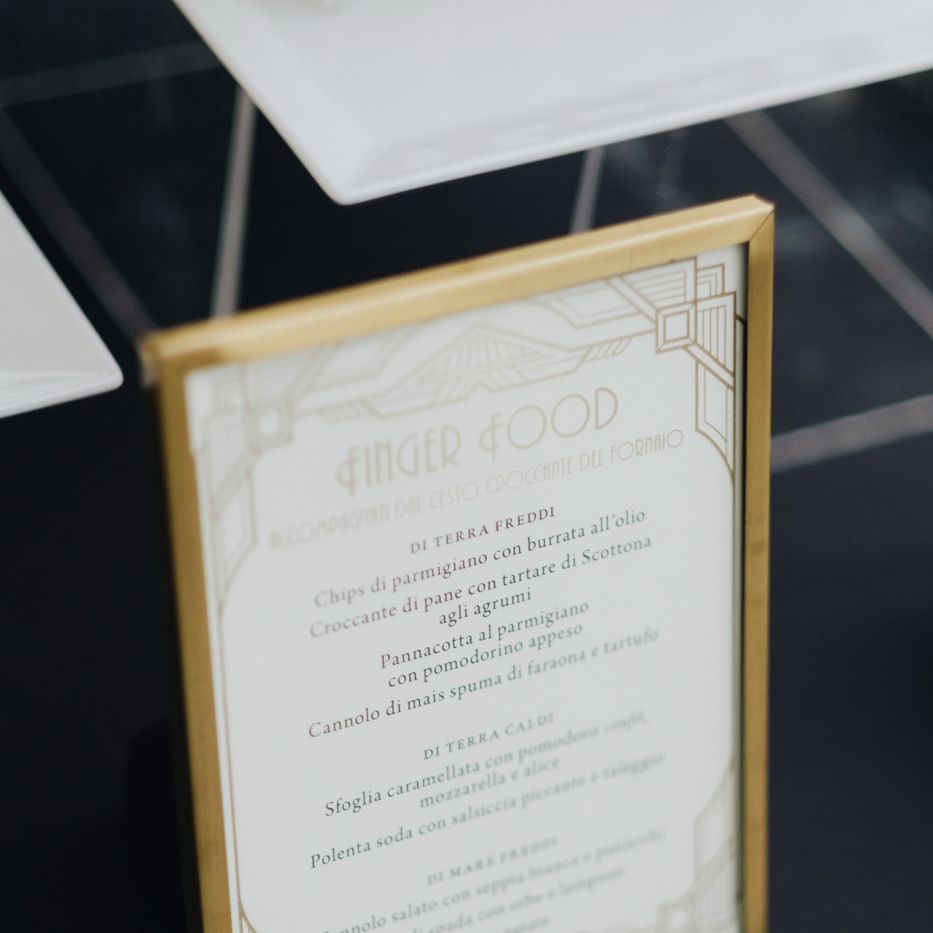 FINGER FOOD
ACCOMPAGNATI DAL CESTO CROCCANTE DEL FORNAIO
DI TERRA FREDDI
Chips di parmigiano con burrata all'olio
Croccante di pane con tartare di Scottona
agli agrumi
Pannacotta al parmigiano
con pomodorino appeso
Cannolo di mais spuma di faraona e tartufo
DI TERRA CALDI
Sfoglia caramellata con pomodoro confit,
mozzarella e alice
Polenta soda con salsiccia piccante e taleggio
DI MARE FREDDI
salato con seppia bianca e
di spada con erbe e lampone